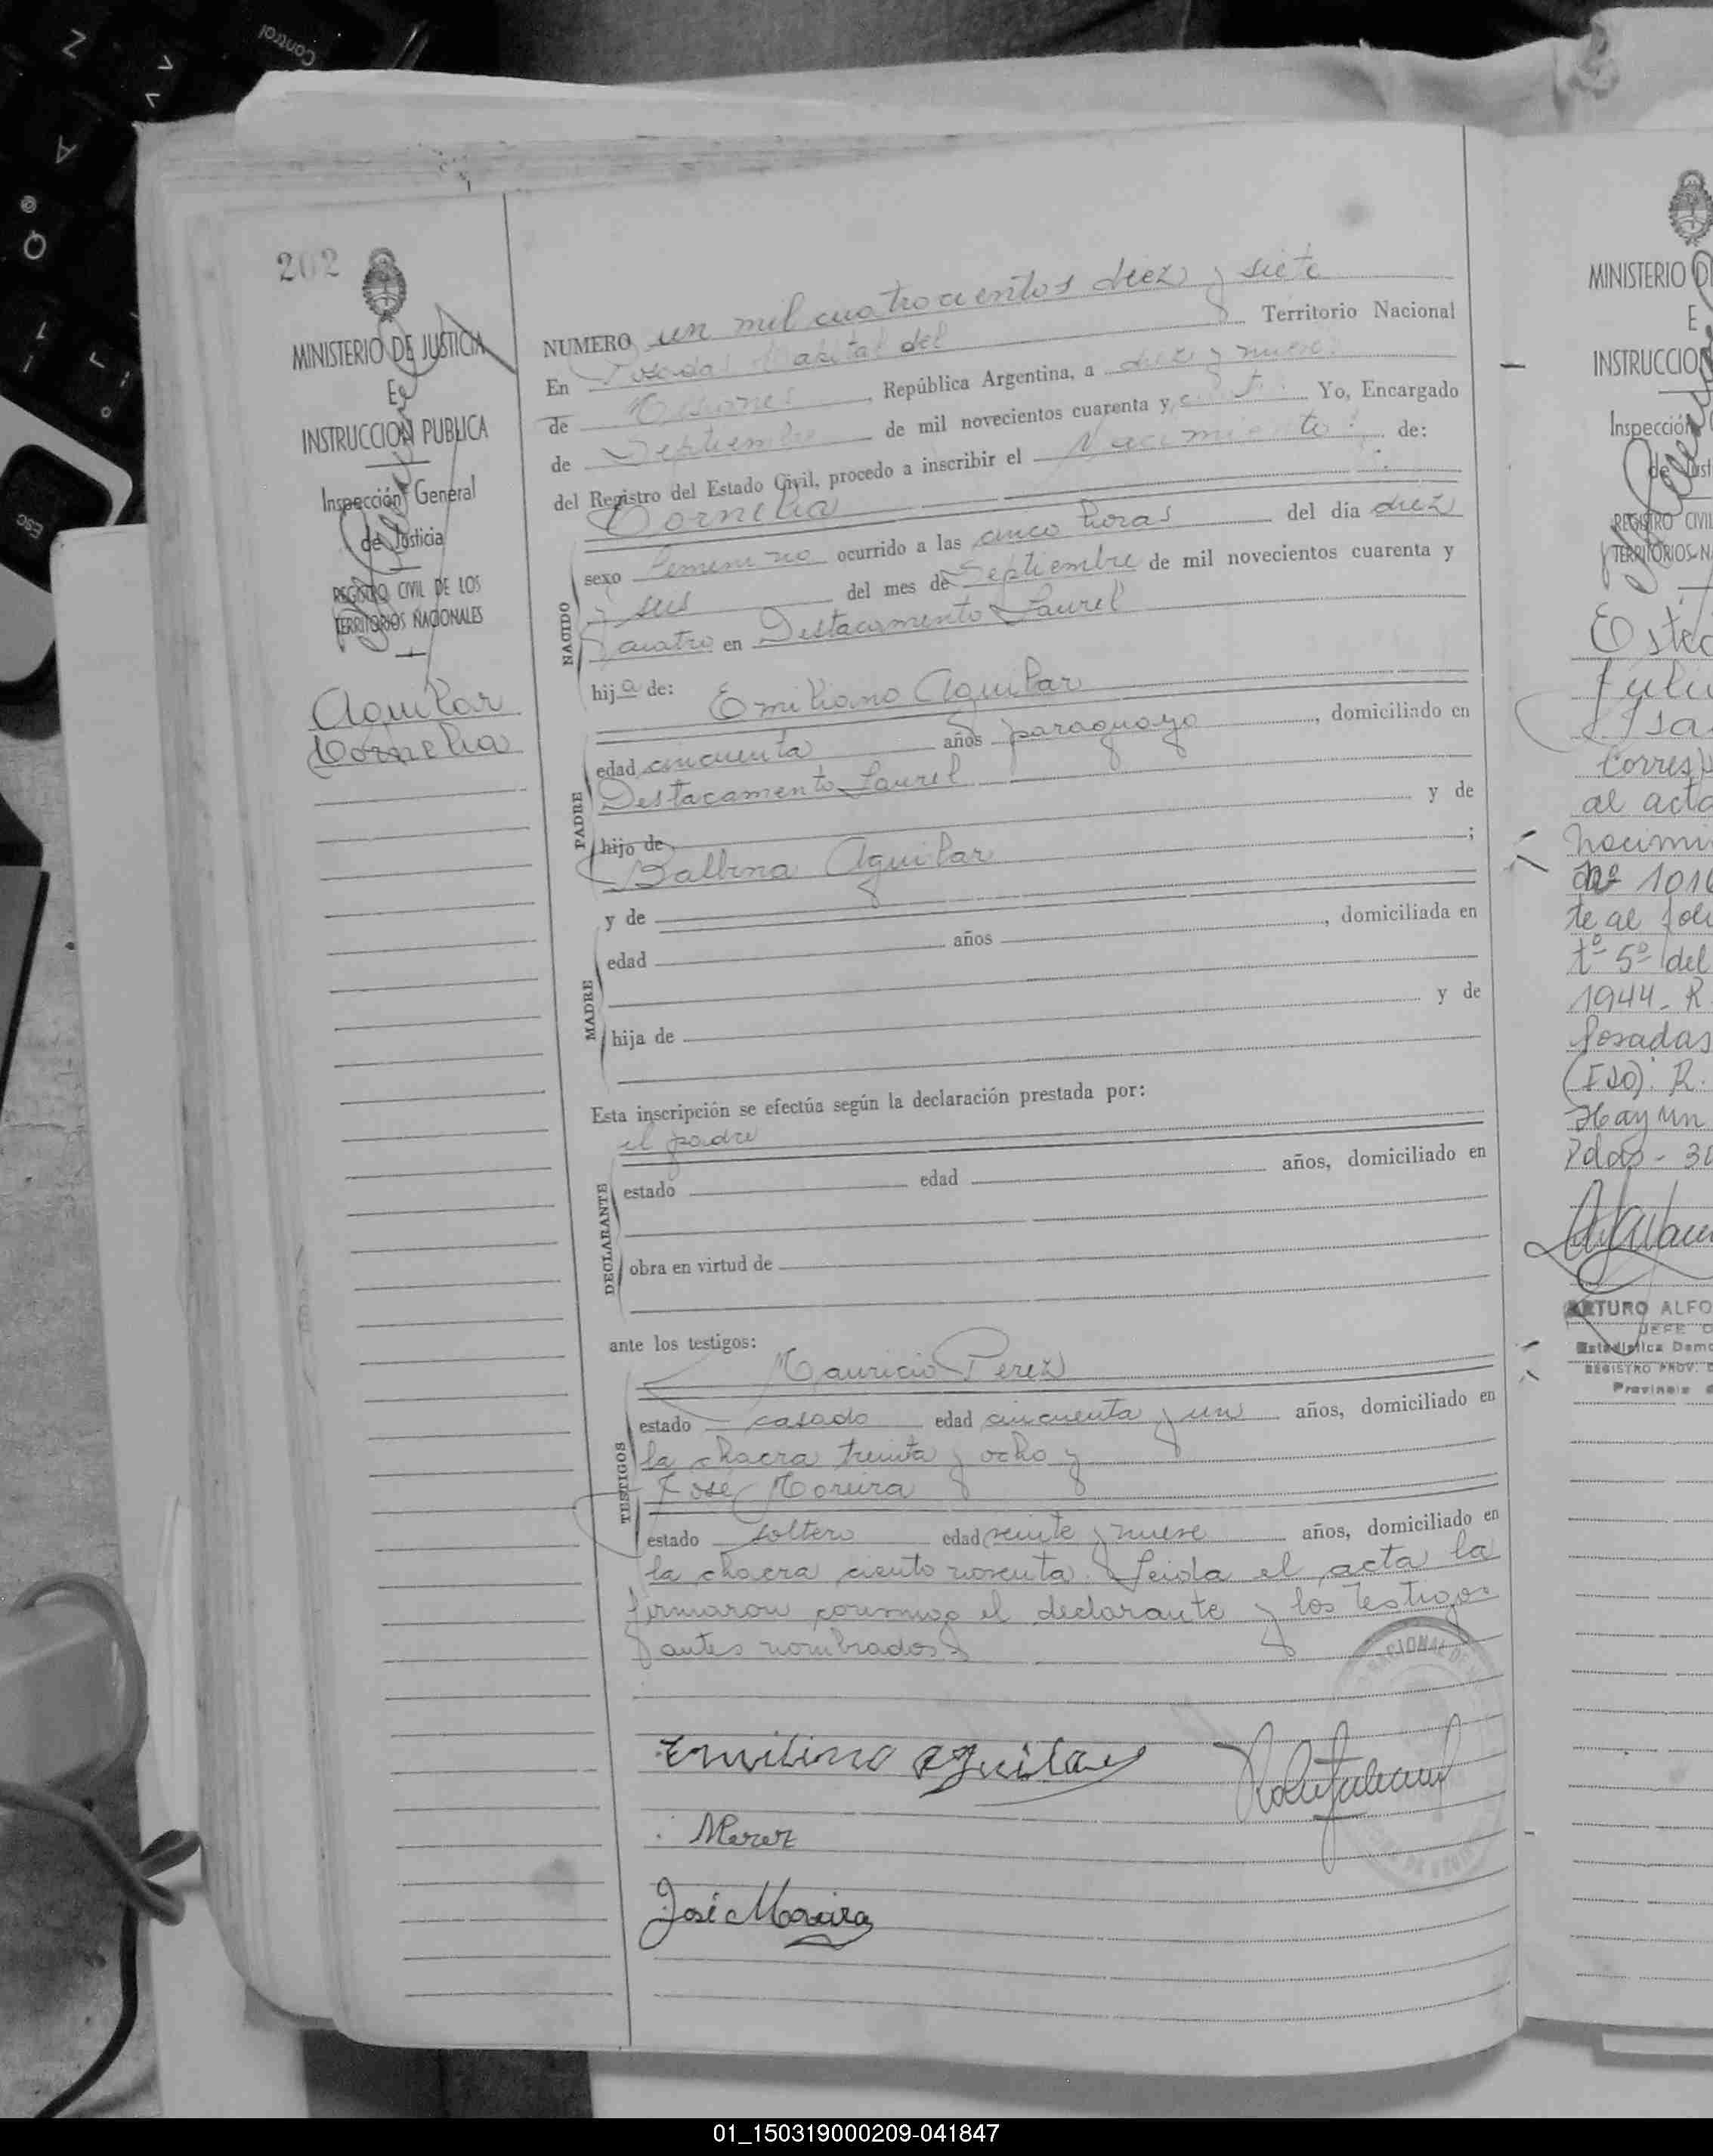 Control
Z
A
Q
esc
202
MINISTERIO DE JUSTICIA
E
INSTRUCCION PUBLICA
Inspección General
de Justicia
REGISTRO CIVIL DE LOS
TERRITORIOS NACIONALES
Aguilar
Cornelia
NUMERO un mil cuatrocientos diez y siete
En Posadas Capital del Territorio Nacional
de Misiones, República Argentina, a diez y nueve
de Septiembre de mil novecientos cuarenta y cuatro. Yo, Encargado
del Registro del Estado Civil, procedo a inscribir el Nacimiento de:
NACIDO
Cornelia
sexo femenino ocurrido a las cinco horas del día diez
y seis del mes de Septiembre de mil novecientos cuarenta y
cuatro en Destacamento Laurel
hija de: Emiliano Aguilar
PADRE
edad cincuenta años paraguayo, domiciliado en
Destacamento Laurel
hijo de y de
Balbina Aguilar;
MADRE
y de
edad años, domiciliada en
hija de y de
Esta inscripción se efectúa según la declaración prestada por:
el padre
DECLARANTE
estado edad años, domiciliado en
obra en virtud de
ante los testigos:
TESTIGOS
Mauricio Perez
estado casado edad cincuenta y un años, domiciliado en
la chacra treinta y ocho y
José Moreira
estado soltero edad veinte y nueve años, domiciliado en
la chacra ciento noventa. Leida el acta la
firmaron conmigo el declarante y los testigos
antes nombrados
Emiliano Aguilar
MPerez
José Moreira
MINISTERIO D
E
INSTRUCCIO
Inspección
de Just
REGISTRO CIVI
TERRITORIOS N
Corres
al acta
nacimi
nº 101
te al foli
tº 5º del
1944 - R.
Posadas
Hay un
Pdas - 30
ARTURO ALFO
JEFE D
Estadística Demo
REGISTRO PROV. D
Provincia
01_150319000209-041847